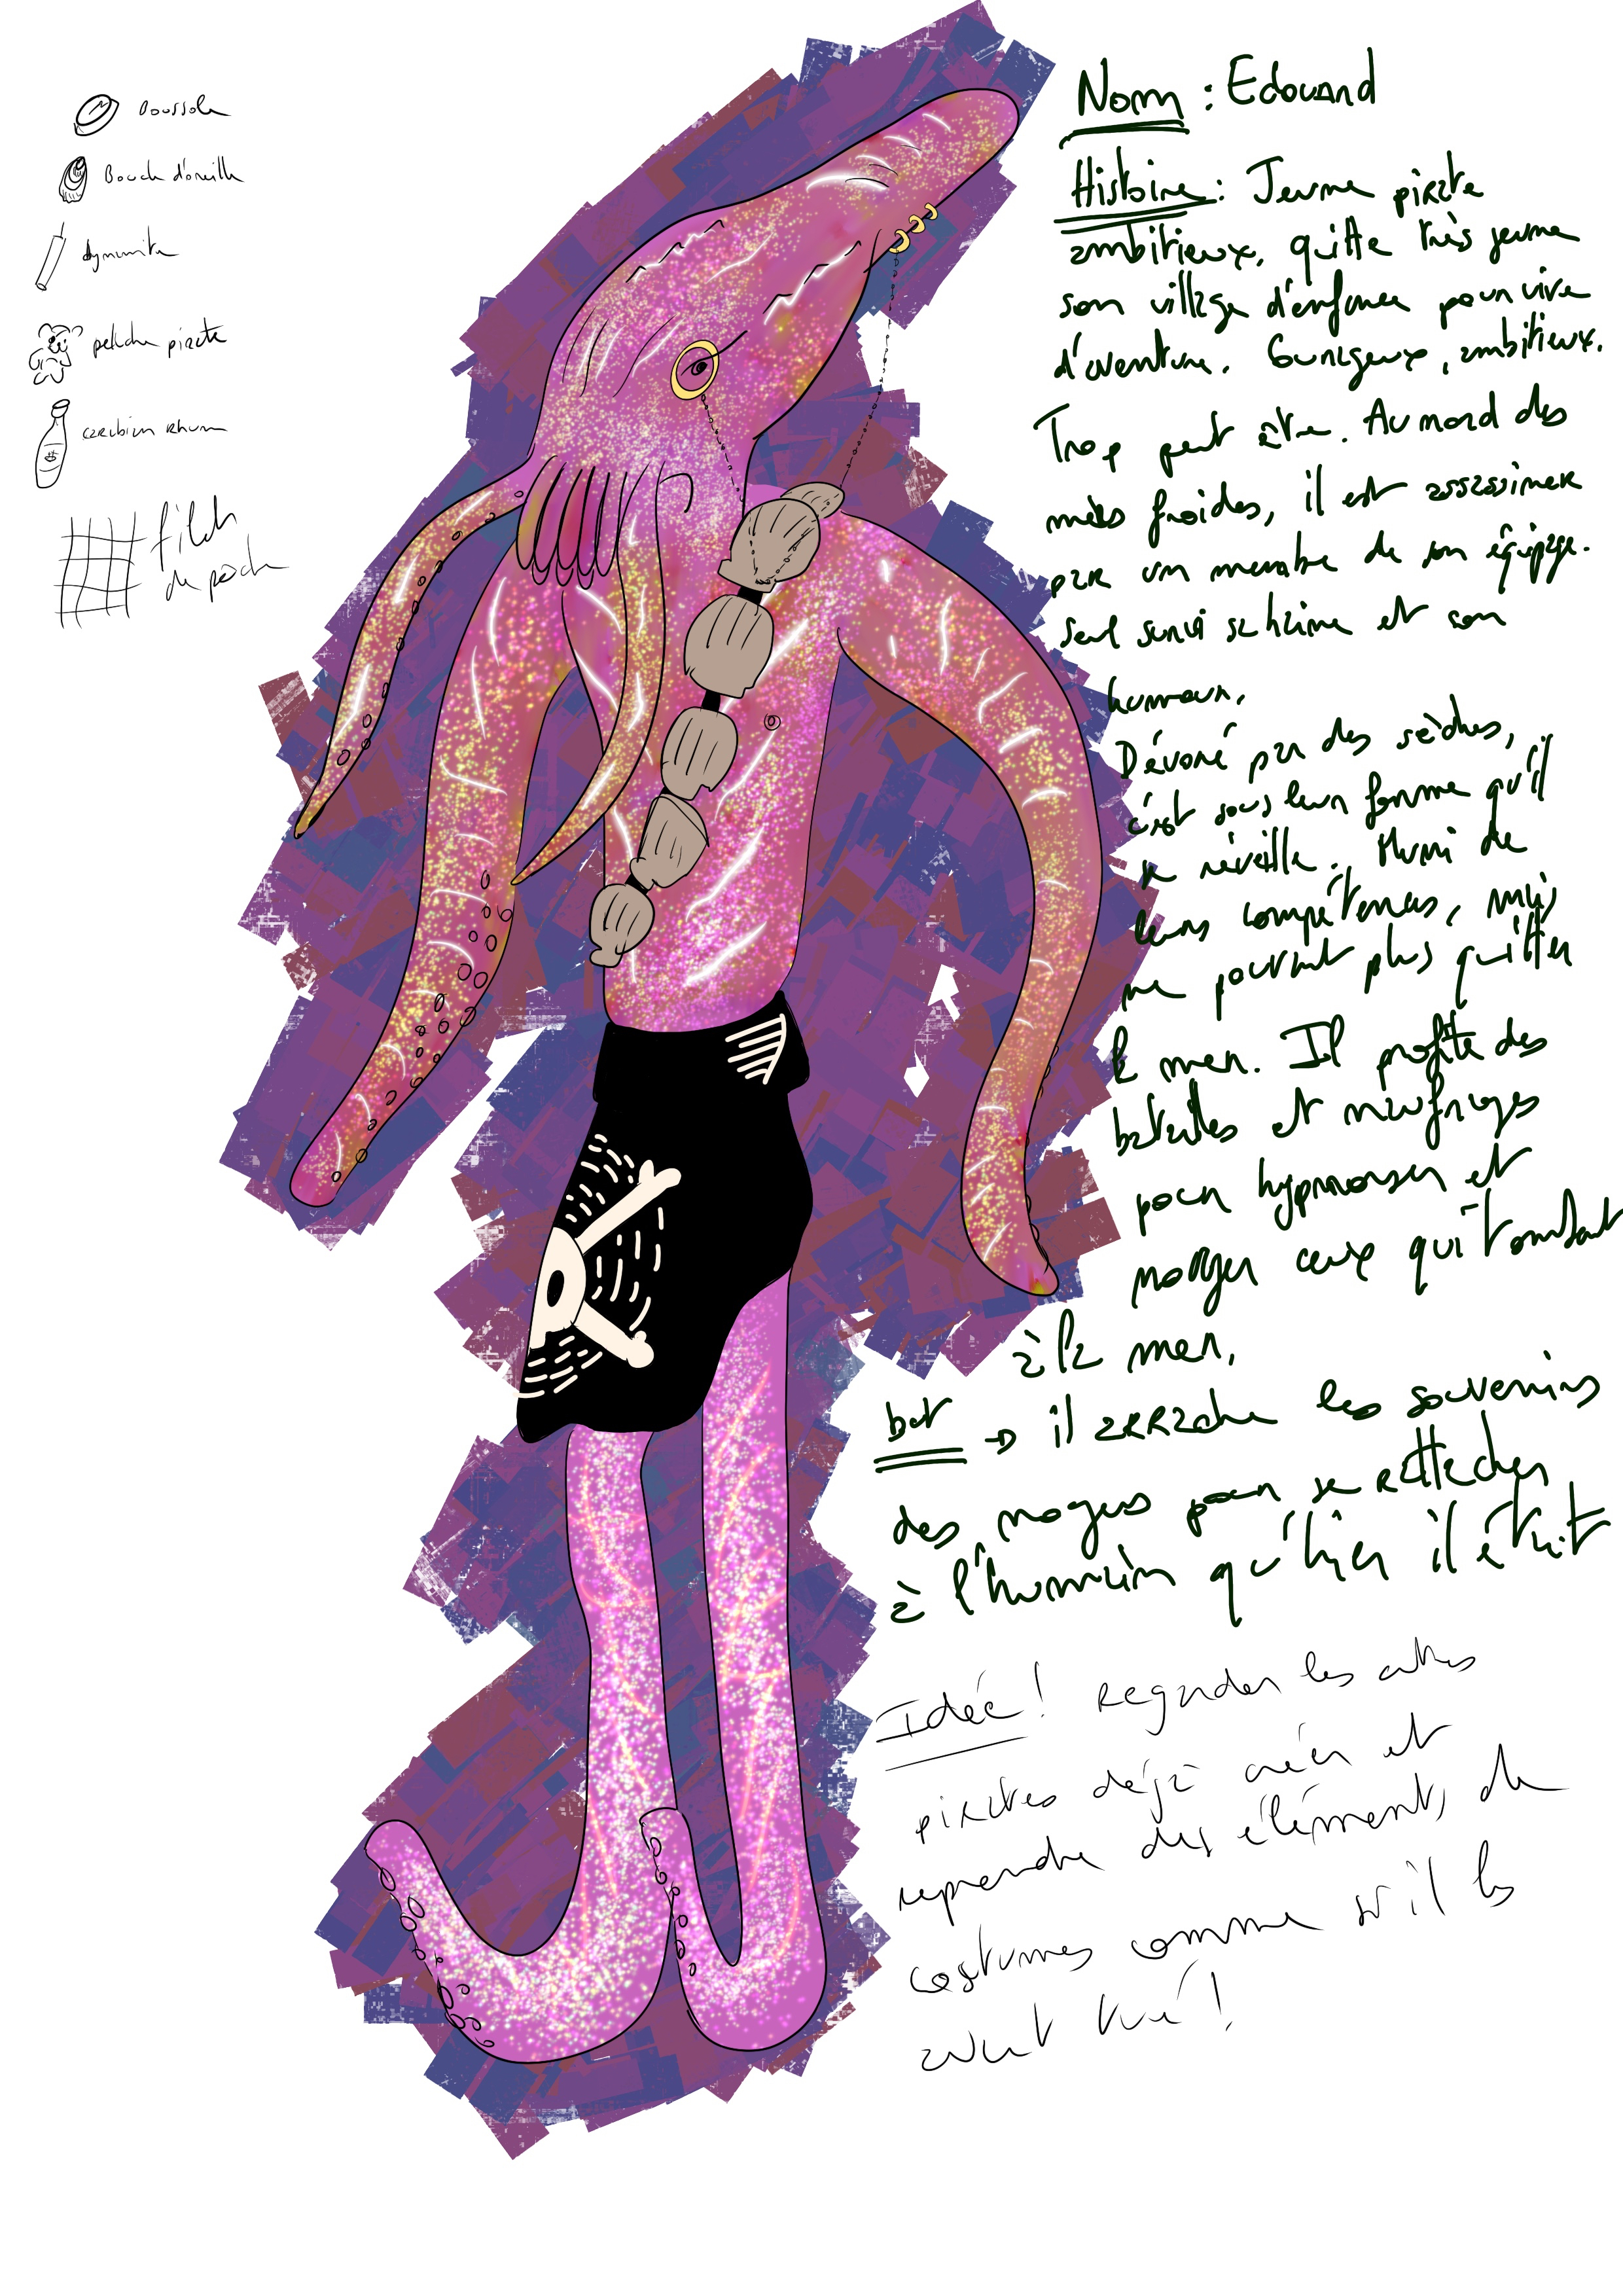 Boussole
Boucle d'oreille
dynamite
peluche pirate
caribien rhum
filet
de pêche
Nom : Edouard
Histoire : Jeune pirate
ambitieux, quitte très jeune
son village d'enfance pour vivre
d'aventure. Courageux, ambitieux.
Trop peut être. Au nord des
mers froides, il est assassiner
par un membre de son équipage.
Seul survi sa haine et son
humour.
Dévoré par des sèches,
c'est sous leur forme qu'il
se réveille. Muni de
leurs compétences, mais
ne pouvant plus quitter
la mer. Il profite des
batailles et naufrages
pour hypnotiser et
noyer ceux qui tombent
à la mer.
but → il arrache les souvenirs
des noyers pour se rattacher
à l'humain qu'hier il était
Idée ! Regarder les autres
pirates déjà créer et
reprendre des éléments de
costumes comme si il les
avait tué !